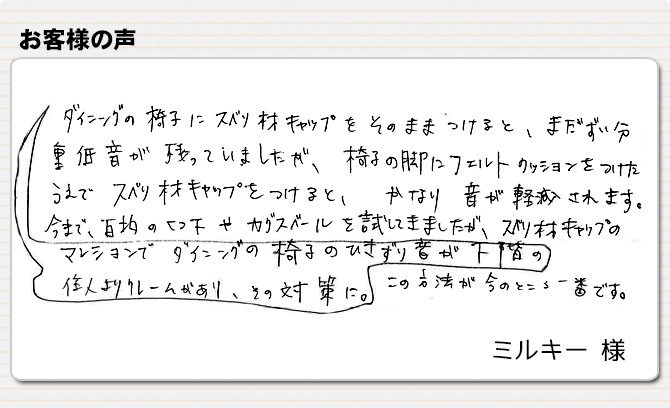 お客様の声
ダイニングの椅子にスベリ材キャップをそのままつけると、まだずい分
重低音が残っていましたが、椅子の脚にフェルトクッションをつけた
うえで スベリ材キャップをつけると、かなり 音が軽減されます。
今まで、百均のくつ下やカグスベールを試してきましたが、スベリ材キャップの
マンションでダイニングの椅子のひきずり音が下階の
住人よりクレームがあり、その対策に。この方法が今のところ一番です。
ミルキー 様